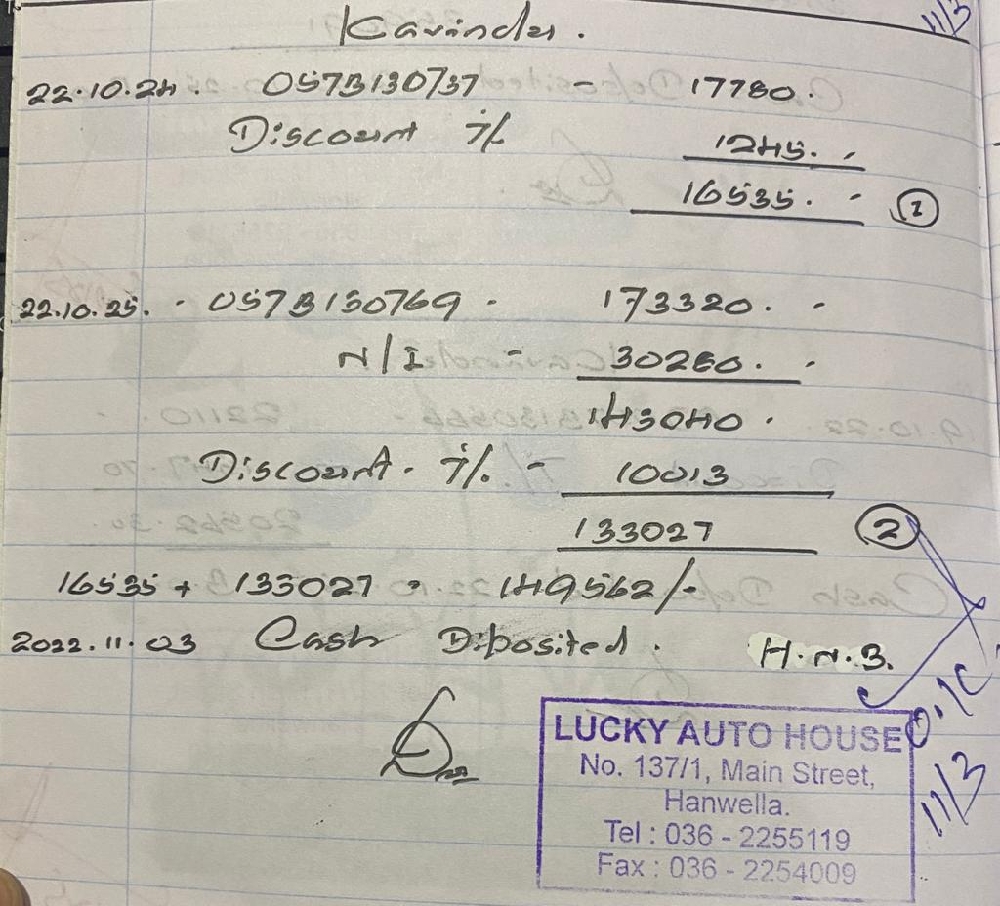 11/3
Kavinder.
22.10.24. 057B130737 - 17780.
Discount 7% 1245.
16535. 1
22.10.25. - 057B130769 - 173320.
N/I - 30280.
143040.
Discount. 7%. - 10013
133027 2
16535 + 133027 = 149562/-
2022.11.03 Cash Diposited. H.N.B.
LUCKY AUTO HOUSE
No. 137/1, Main Street,
Hanwella.
Tel : 036 - 2255119
Fax : 036 - 2254009
11/3